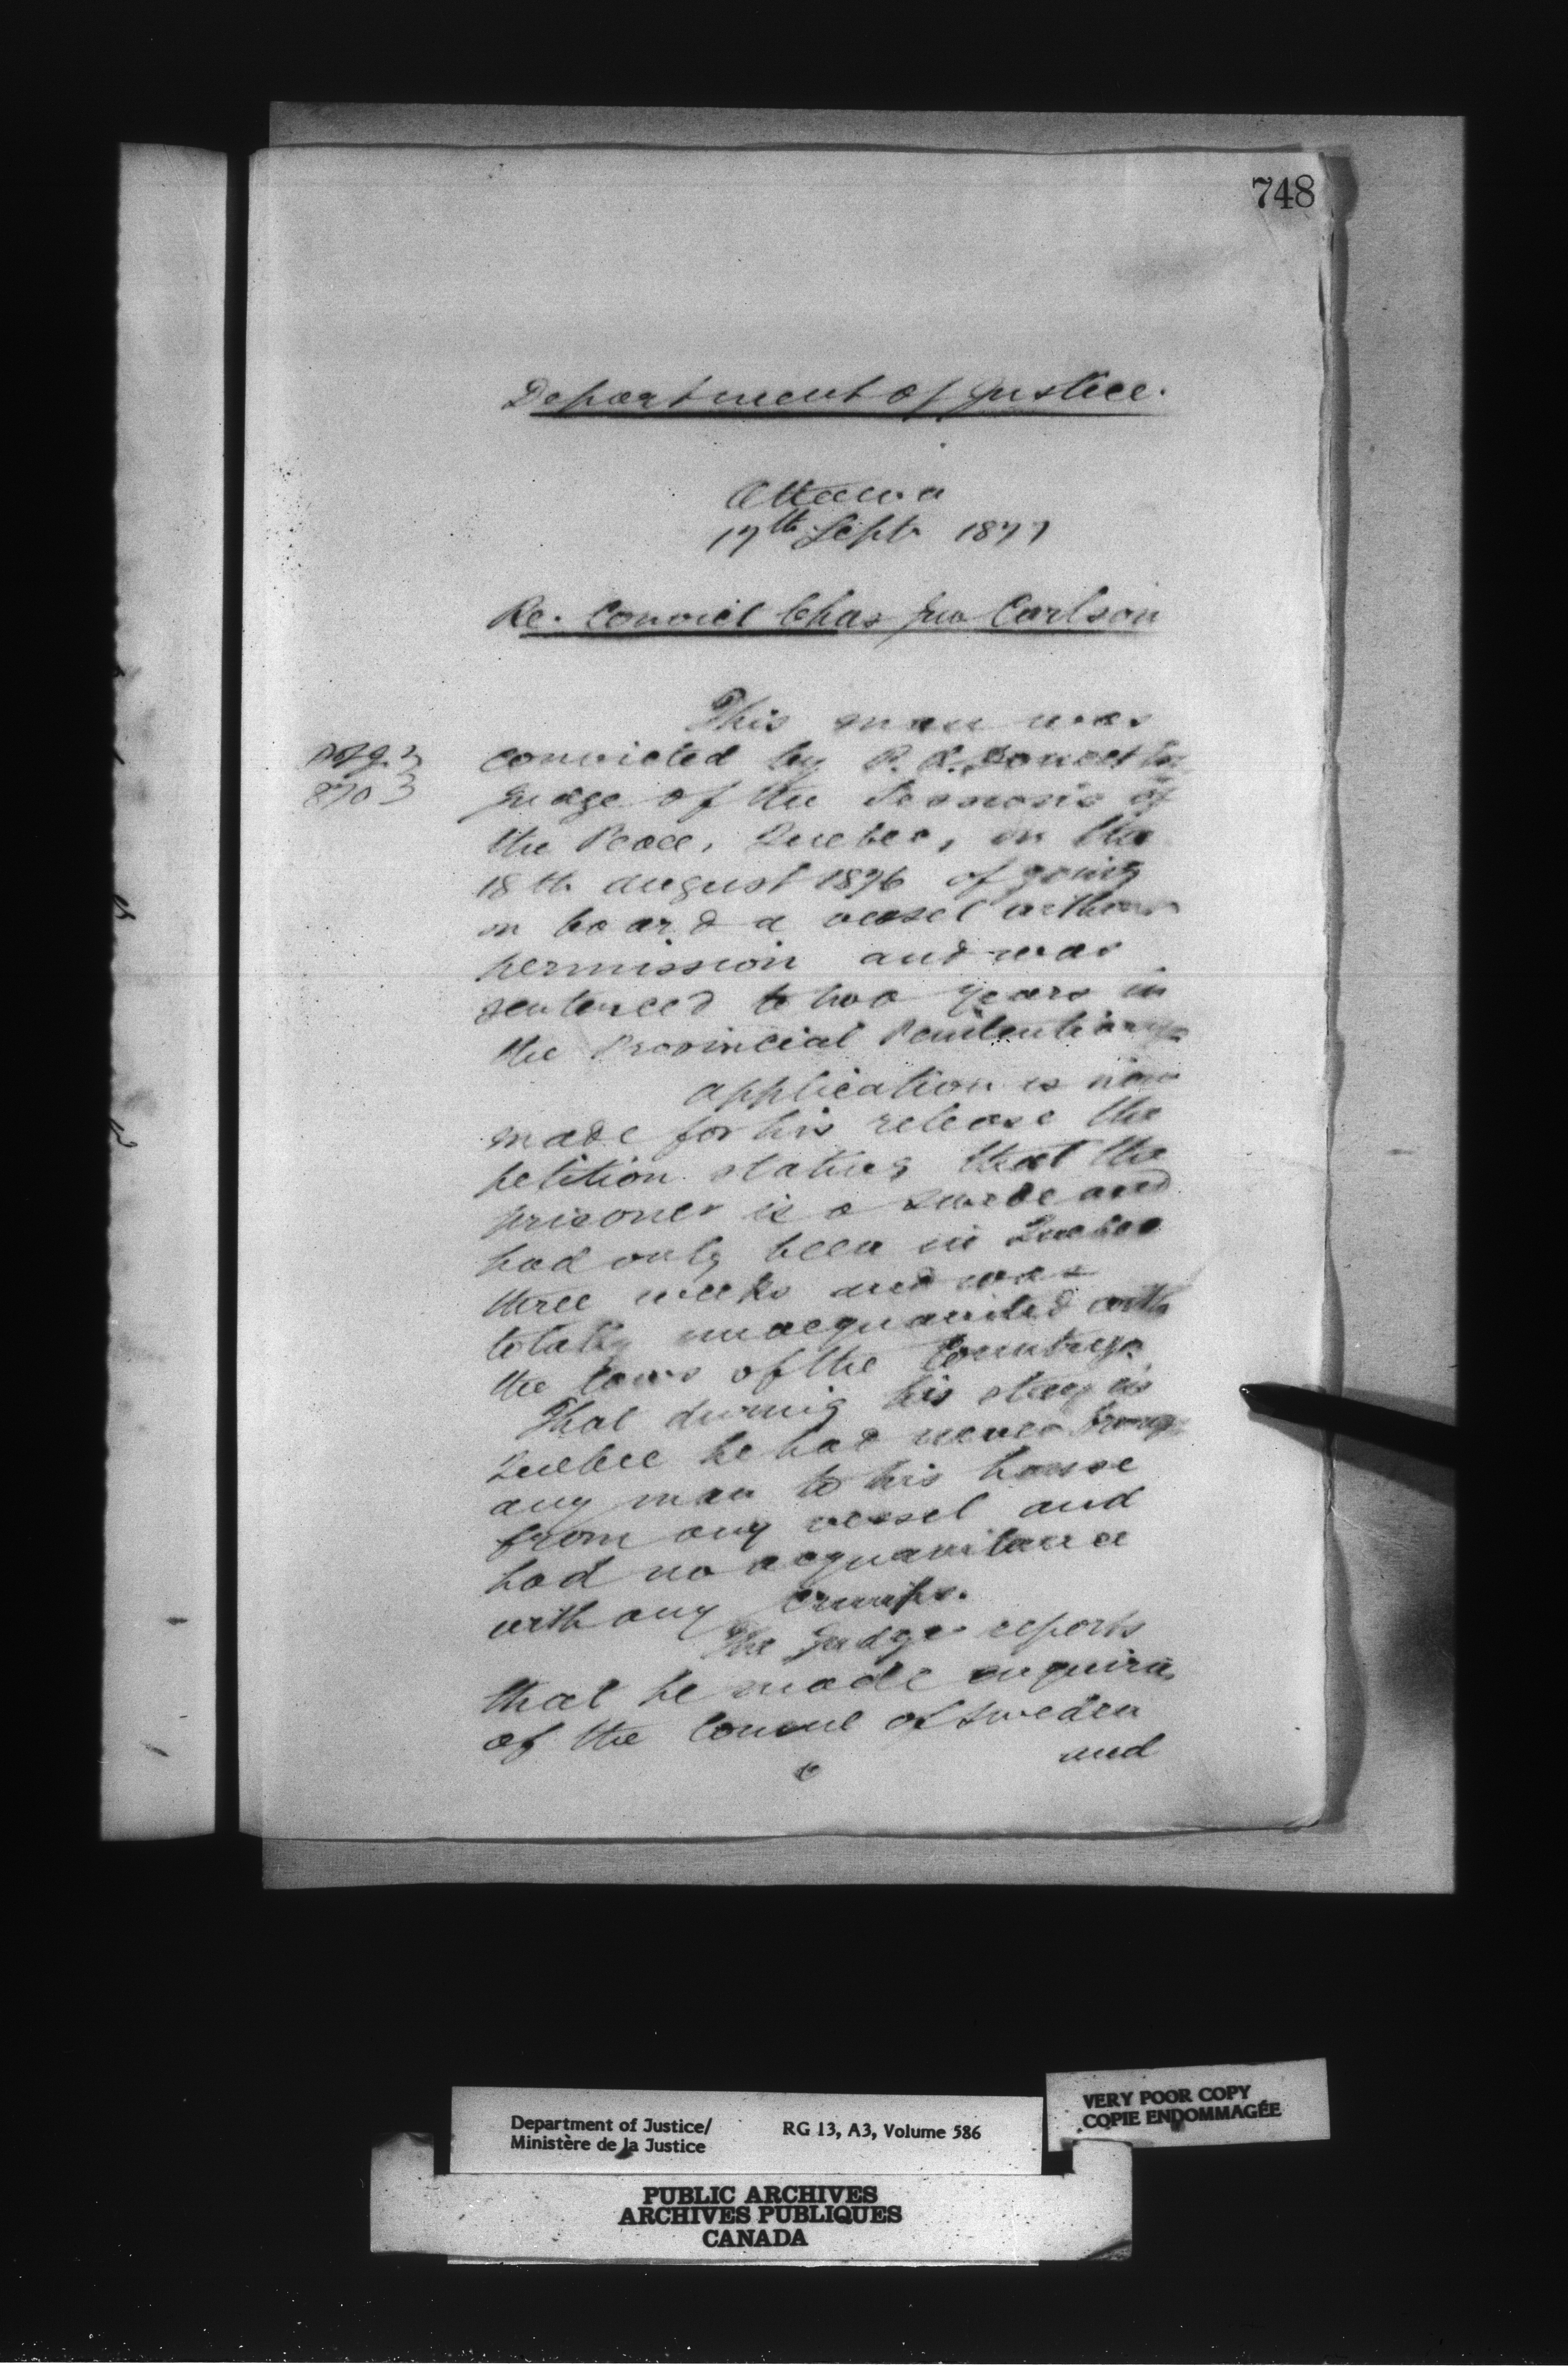 748
Department of Justice.
Ottawa
17th Sept. 1877
Re. Convict Chas Jno Carlson
This man was
convicted by P. A. Doucet
Judge of the Sessions of
the Peace, Quebec, on the
18th august 1876 of going
on board a vessel without
permission and was
sentenced to two years in
the Provincial Penitentiary.
Application is now
made for his release the
petition stating that the
prisoner is a Swede and
had only been in Quebec
three weeks and was
totally unacquainted with
the laws of the Country.
That during his stay in
Quebec he had never brought
any man to his house
from any vessel and
had no acquaintance
with any crimps.
The Judge reports
that he made enquiries
of the Consul of Sweden
and
Department of Justice/
Ministère de la Justice
RG 13, A3, Volume 586
VERY POOR COPY
COPIE ENDOMMAGÉE
PUBLIC ARCHIVES
ARCHIVES PUBLIQUES
CANADA